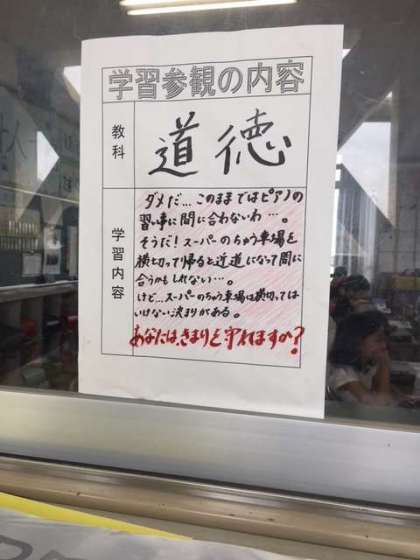 学習参観の内容
教科
道徳
学習内容
ダメだ…このままではピアノの
習い事に間に合わないわ…。
そうだ!スーパーのちゅう車場を
横切って帰ると近道になって間に
合うかもしれない…。
けど…スーパーのちゅう車場は横切っては
いけない決まりがある。
あなたは、きまりを守れますか?